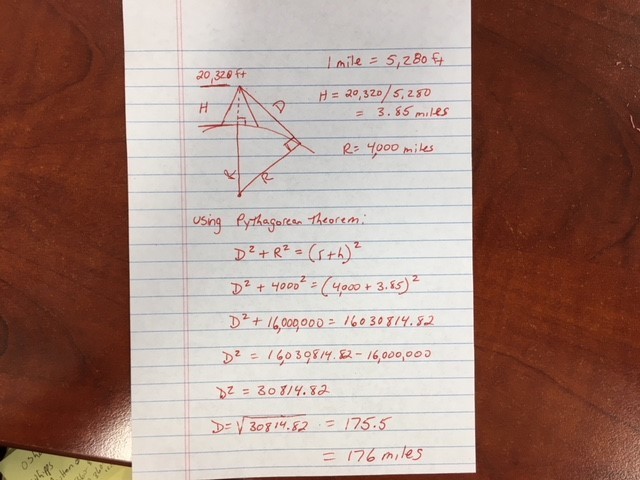 1 mile = 5,280 ft
20,320 ft
H = 20,320/5,280
= 3.85 miles
H
D
R = 4,000 miles
R
R
Using Pythagorean Theorem:
D² + R² = (r+h)²
D² + 4000² = (4,000 + 3.85)²
D² + 16,000,000 = 16030814.82
D² = 16,030814.82 - 16,000,000
D² = 30814.82
D = √30814.82 = 175.5
= 176 miles